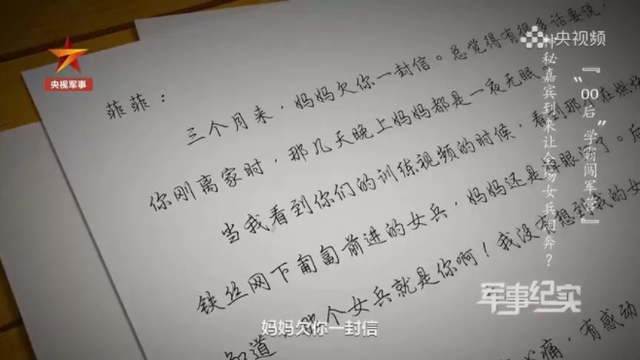 央视军事
央视频
菲菲：
三个月来，妈妈欠你一封信。总觉得有很多话要说，
你刚离家时，那几天晚上妈妈都是一夜无眠
当我看到你们的训练视频的时候，看到那个在
铁丝网下匍匐前进的女兵，妈妈还是
知道，那个女兵就是你啊！我没有想到我的女
痛，有感动
『“00后”学霸闯军营』
秘嘉宾到来让全场女兵相奔？
军事纪实
妈妈欠你一封信